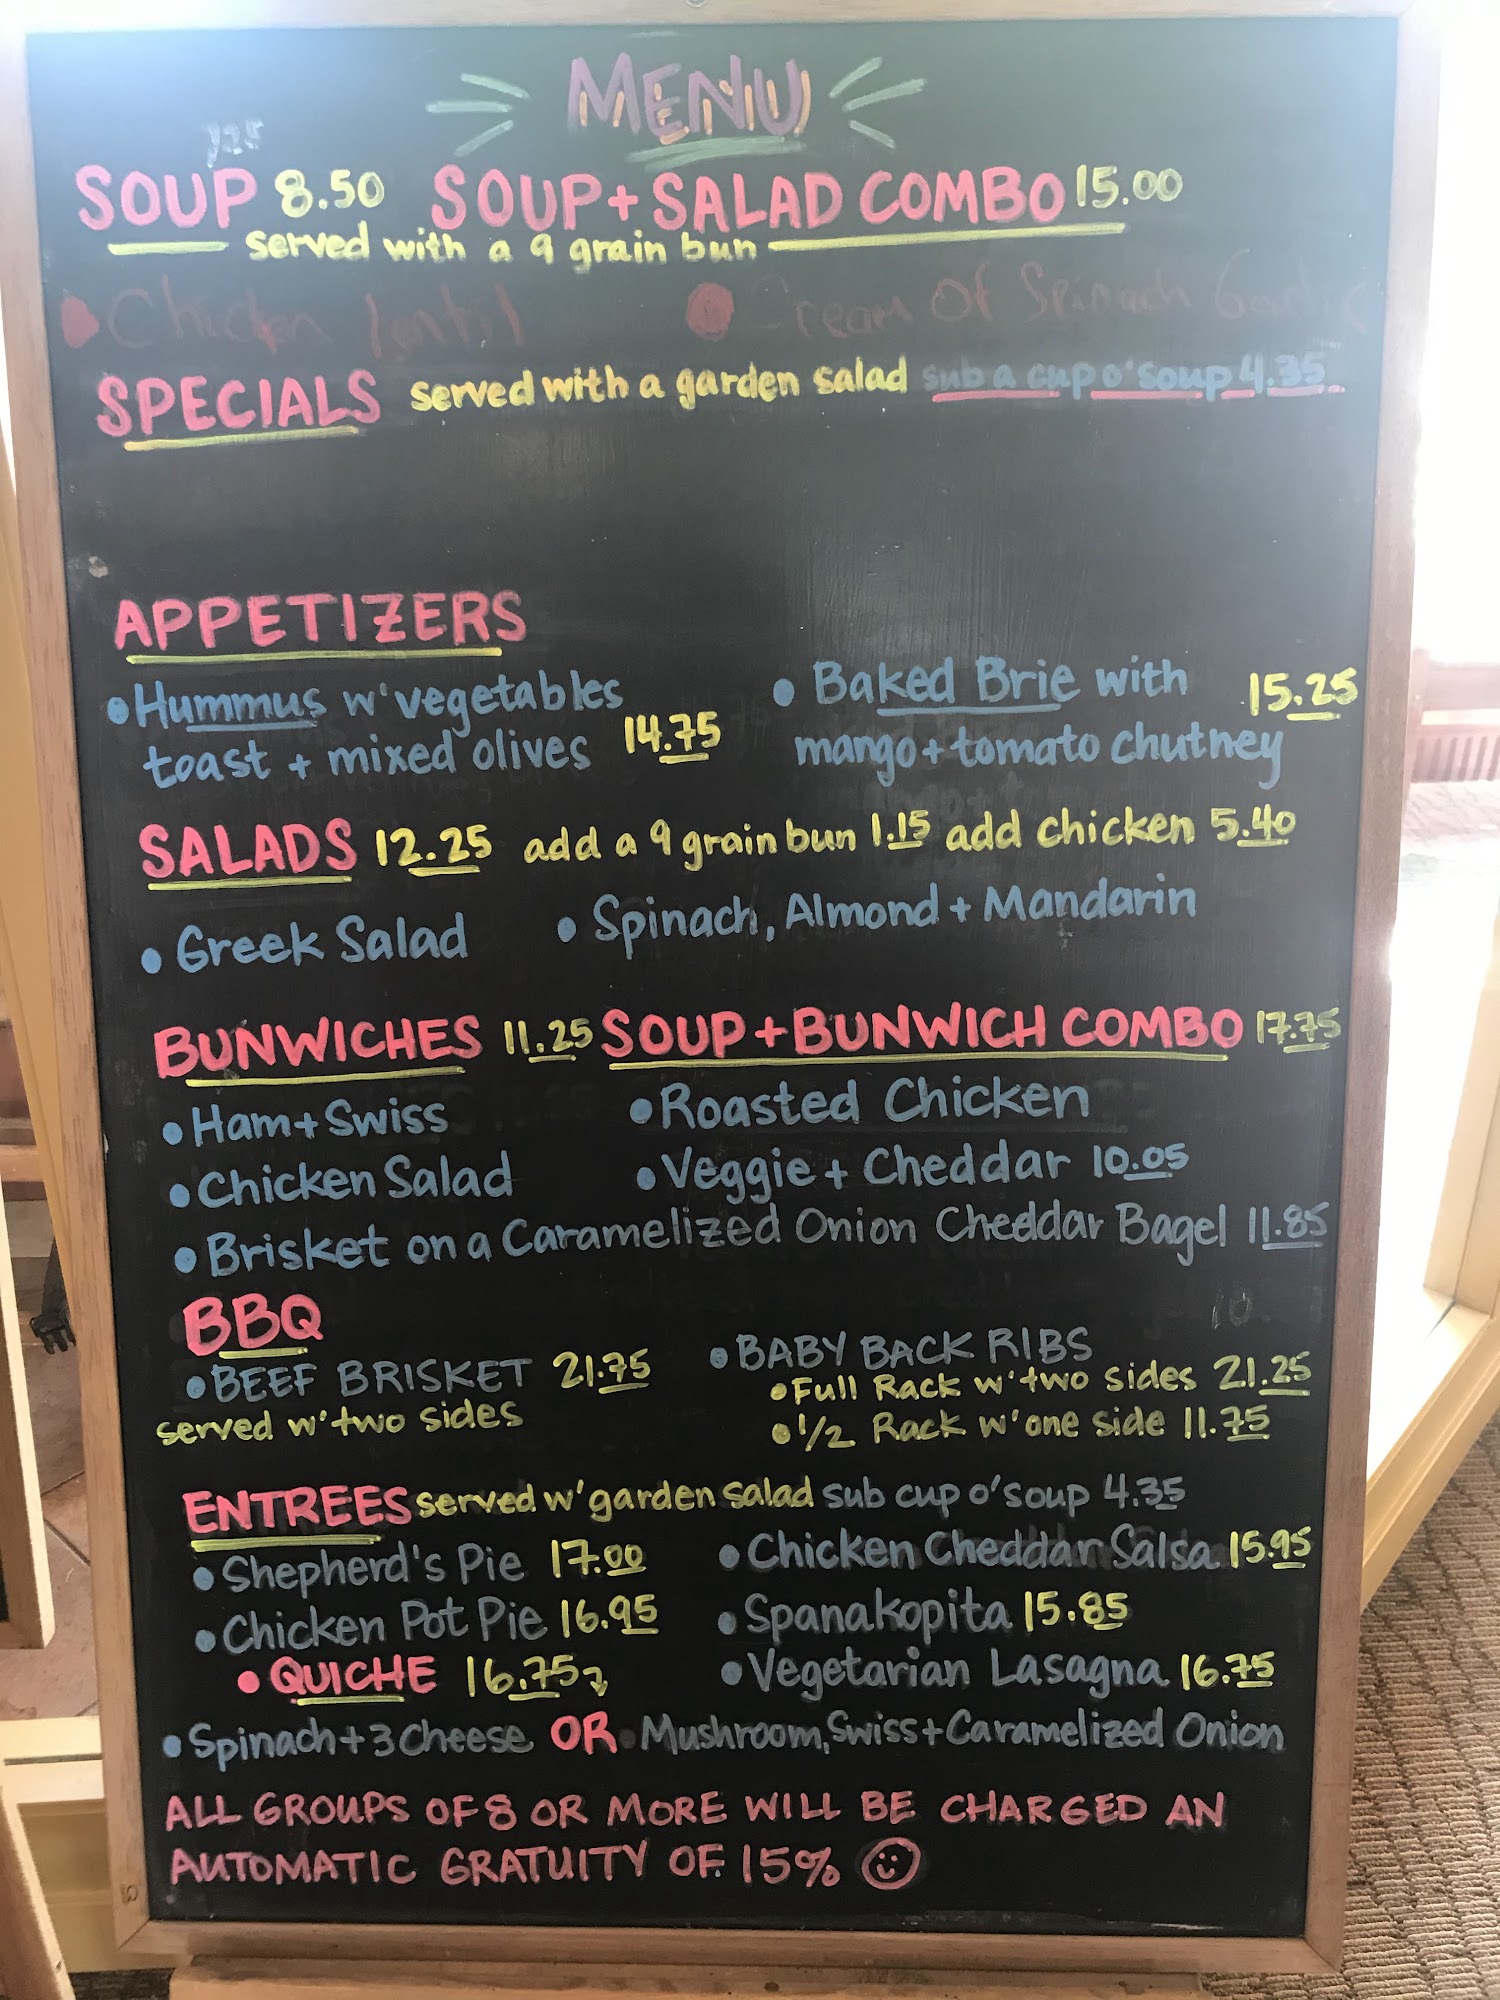 MENU
SOUP 8.50 SOUP + SALAD COMBO 15.00
served with a 9 grain bun
• Chicken lentil • Cream Of Spinach Garlic
SPECIALS served with a garden salad sub a cup o'soup 4.35
APPETIZERS
• Hummus w'vegetables
toast + mixed olives 14.75
• Baked Brie with 15.25
mango + tomato chutney
SALADS 12.25 add a 9 grain bun 1.15 add chicken 5.40
• Greek Salad • Spinach, Almond + Mandarin
BUNWICHES 11.25 SOUP + BUNWICH COMBO 17.75
• Ham + Swiss • Roasted Chicken
• Chicken Salad • Veggie + Cheddar 10.05
• Brisket on a Caramelized Onion Cheddar Bagel 11.85
BBQ
• BEEF BRISKET 21.75
served w'two sides
• BABY BACK RIBS
• Full Rack w'two sides 21.25
• 1/2 Rack w'one side 11.75
ENTREES served w'garden salad sub cup o'soup 4.35
• Shepherd's Pie 17.00 • Chicken Cheddar Salsa 15.95
• Chicken Pot Pie 16.95 • Spanakopita 15.85
• QUICHE 16.75 • Vegetarian Lasagna 16.75
• Spinach + 3 Cheese OR • Mushroom, Swiss + Caramelized Onion
ALL GROUPS OF 8 OR MORE WILL BE CHARGED AN
AUTOMATIC GRATUITY OF 15%